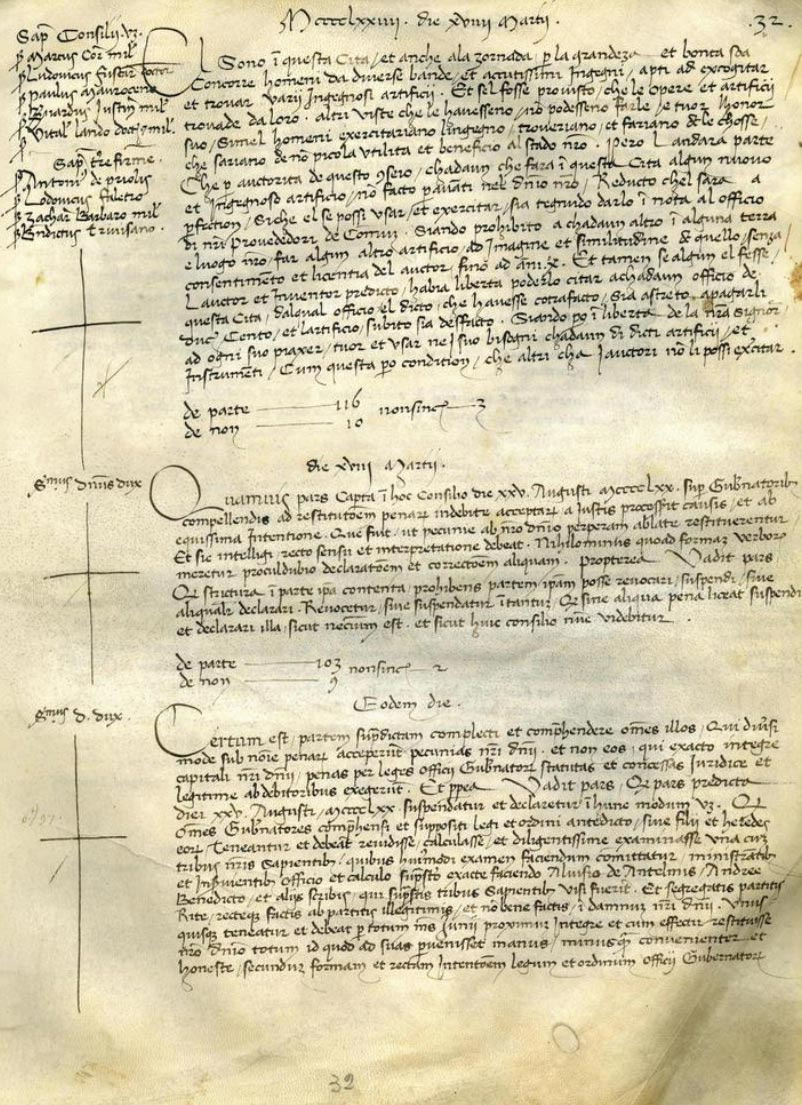 Mcccclxxiiij . die xviiij Martij .
.32.
Sap.tes Consilij. vz.
ꝑ Marcus Cor. mil.
ꝑ Ludovicus fuscar. doctor
ꝑ paulus Mauroceno
ꝑ Bnardus Justin. mil.
ꝑ Vital lando doct. mil.
Sap. t.re firme.
ꝑ Antoni. de priolis
ꝑ Lodovicus faletro
ꝑ Zachar. Barbaro mil.
ꝑ Bndictus trivisano.
El Sono ĩ questa Cita / et anche ala zornada ꝑ la grandeza et bonta soa
Concorre homeni da diverse bande / et acutissimi Ingegni, apti ad excogitar
et trovar Varij Ingegnosi artificij . Et sel fosse provisto / che le opere et artificij
trovade da loro . altri viste che le havesseno / nõ podesseno farle / e tuor Honor
suo / Simel homeni exercitariano lingegno, troveriano / et fariano de le chosse /
che sariano de nõ picola utilita et beneficio al stado nr̃o . Pero Landara parte
Che ꝑ auctorita de questo ꝯseio / chadaun che fara ĩ questa Cita algun nuovo
et Ingegnoso artificio / nõ facto ꝑavanti nel dñio nr̃o / Reducto chel sara a
ꝑfection / Siche el se possi Usar / et exercitar / sia tegnudo darlo ĩ nota al officio
di nr̃i Provededori de Comun . Siando prohibito a chadaun altro ĩ alguna terra
e luogo nr̃o / far algun altro artificio / ad Imagine et similitudine de quello / senza
consentimẽto et licentia del auctor / fino ad ani .x. Et tamen se algun el fesse /
Lauctor et Inventor predicto / habia liberta poderlo citar a chadaun officio de
questa Cita / dalqual officio el dicto / che havesse cõtrafacto / sia astreto apagarli
duc. Cento / et lartificio / subito sia desfacto . Siando ꝑo ĩ liberta de la nr̃a Signor.
ad ogni suo piaxer / tuor et usar nei suo bisogni chadaun di dicti artificij / et
Instrumẽti / Cum questa ꝑo condition / che altri cha I auctori nõ li possi exercitar .
de parte 116 nonsinc. 3
de non 10
die xviij Martij .
S.mus dñus dux
Quamvis pars Capta ĩ hoc Consilio die xxv. Augusti mcccclxx . suꝑ Gub.natorib.
compellendis ad restitutõem penar. indebite acceptar. a Iustis processit causis / et ab
equissima Intentione . Que fuit / ut pecunie ab nr̃o dñio perperam ablate restituerentur
Et sic intelligi recto sensu et interpretatione debeat . Nihilominus quoad formaz verbor.
meretur proculdubio declaratõem et correctõem aliquam . Propterea Vadit pars
Q. structura ĩ parte ip̃a contenta / prohibens partem ip̃am posse revocari / suspendi / sive
aliqualr̃ declarari . Revocetur / sive suspendatur ĩtantũ / Q. sine aliqua pena liceat suspendi
et declarari illa / sicut necium est . et sicut huic consilio videbitur .
de parte 103 nonsinc. 2
de non 9
Eodem die .
S.mus d. dux .
Certum est / partem sup̃dictam complecti et comp̃hendere om̃es illos / Qui diũsi
mode sub nõie penar. acceperũt pecunias nr̃i dñij . et non eos / qui exacto integre
capitali nr̃i dñij / penas per leges officij Gub.nator. statutas et concessas Iuridice et
legitime ab debitoribus exegerũt . Et ꝓpea Vadit pars / Q. pars predicta
diei xxv. Augusti / mcccclxx suspendatur et declaretur ĩ hunc modum vz. Q.
om̃es Gub.natores comp̃hensi et suppositi legi et ordini antedicto / sive filij et heredes
eor. Teneantur et debeãt revidisse / calculasse / et diligentissime examinasse una cuz
tribus nr̃is Sapientib. quibus huiusmodi examen faciendum comittatur / ministrãtib.
et Inservientib. officio et calculo sup̃sto exacte faciendo Aluisio de Antelmis / Andree
Benedicto / et alijs scribis / qui sup̃stis tribus Sapientib. visi fuerĩt . Et segregatis partitis
Rite / recteq. factis ab partitis illegitimis / et nõ bene factis / ĩ damnuz nr̃i dñij . Unus-
quisq. teneatur et debeat ꝑ totum mẽs. Junij proximuz Integre et cum effectu restituisse
nr̃o dñio totum id quod ad suas pervenisset manus / minusq. convenienter et
honeste / secunduz formam et rectam Intentõem legum et ordinum officij Gubernator.
32